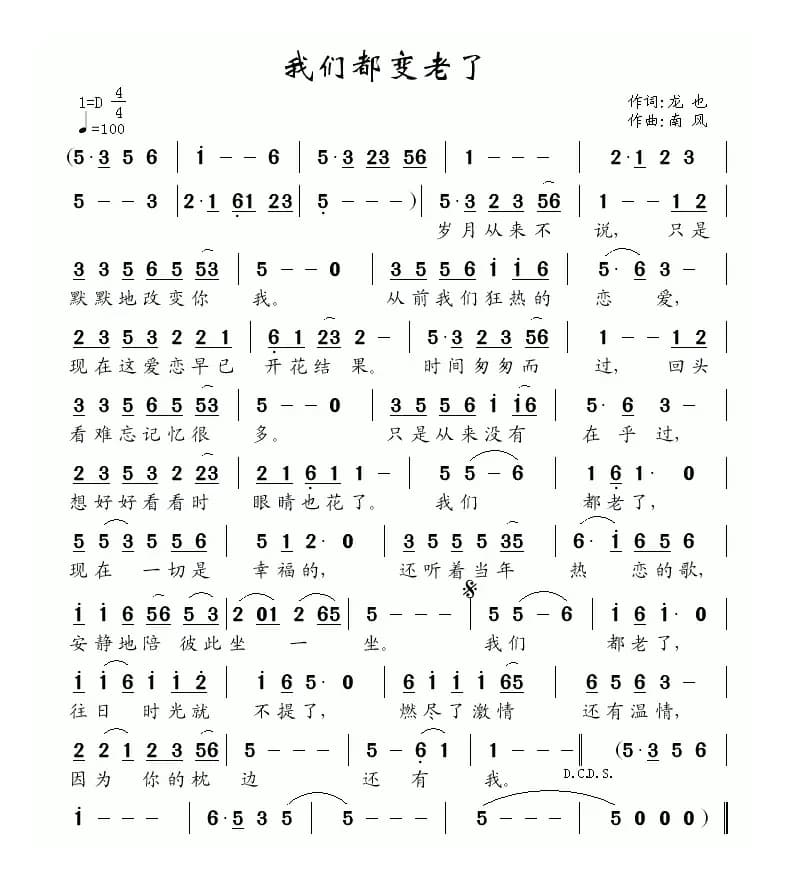 我们都变老了
1=D 4/4
♩=100
作词:龙 也
作曲:南 风
(5·3 5 6 | i - - 6 | 5·3 23 56 | 1 - - - | 2·1 2 3
5 - - 3 | 2·1 61 23 | 5 - - -) | 5·3 2 3 56 | 1 - - 1 2
岁月从来不 说, 只是
3 3 5 6 5 53 | 5 - - 0 | 3 5 5 6 i i 6 | 5· 6 3 -
默默地改变你 我。 从前我们狂热的 恋 爱,
2 3 5 3 2 2 2 1 | 6 1 23 2 - | 5·3 2 3 56 | 1 - - 1 2
现在这爱恋早已 开花结 果。 时间匆匆而 过, 回头
3 3 5 6 5 53 | 5 - - 0 | 3 5 5 6 i i6 | 5· 6 3 -
看难忘记忆很 多。 只是从来没有 在 乎过,
2 3 5 3 2 23 | 2 1 6 1 1 - | 5 5 - 6 | 1 6 1· 0
想好好看看时 眼睛也花了。 我们 都老了,
5 5 3 5 5 6 | 5 1 2· 0 | 3 5 5 5 35 | 6· i 6 5 6
现在 一切是 幸福的, 还听着当年 热 恋的歌,
i i 6 56 5 3 | 2 01 2 65 | 5 - - - | 5 5 - 6 | i 6 i· 0
安静地陪 彼此坐 一 坐。 我们 都老了,
i i 6 i i 2 | i 6 5· 0 | 6 6 i i i 65 | 6 5 6 5 3
往日 时光就 不提了, 燃尽了激情 还有温情,
2 2 1 2 3 2 56 | 5 - - - | 5 - 6 1 | 1 - - - ‖ (5·3 5 6
因为 你的枕 边 还 有 我。 D.C.D.S.
i - - - | 6·5 3 5 5 | 5 - - - | 5 - - - | 5 0 0 0) ‖